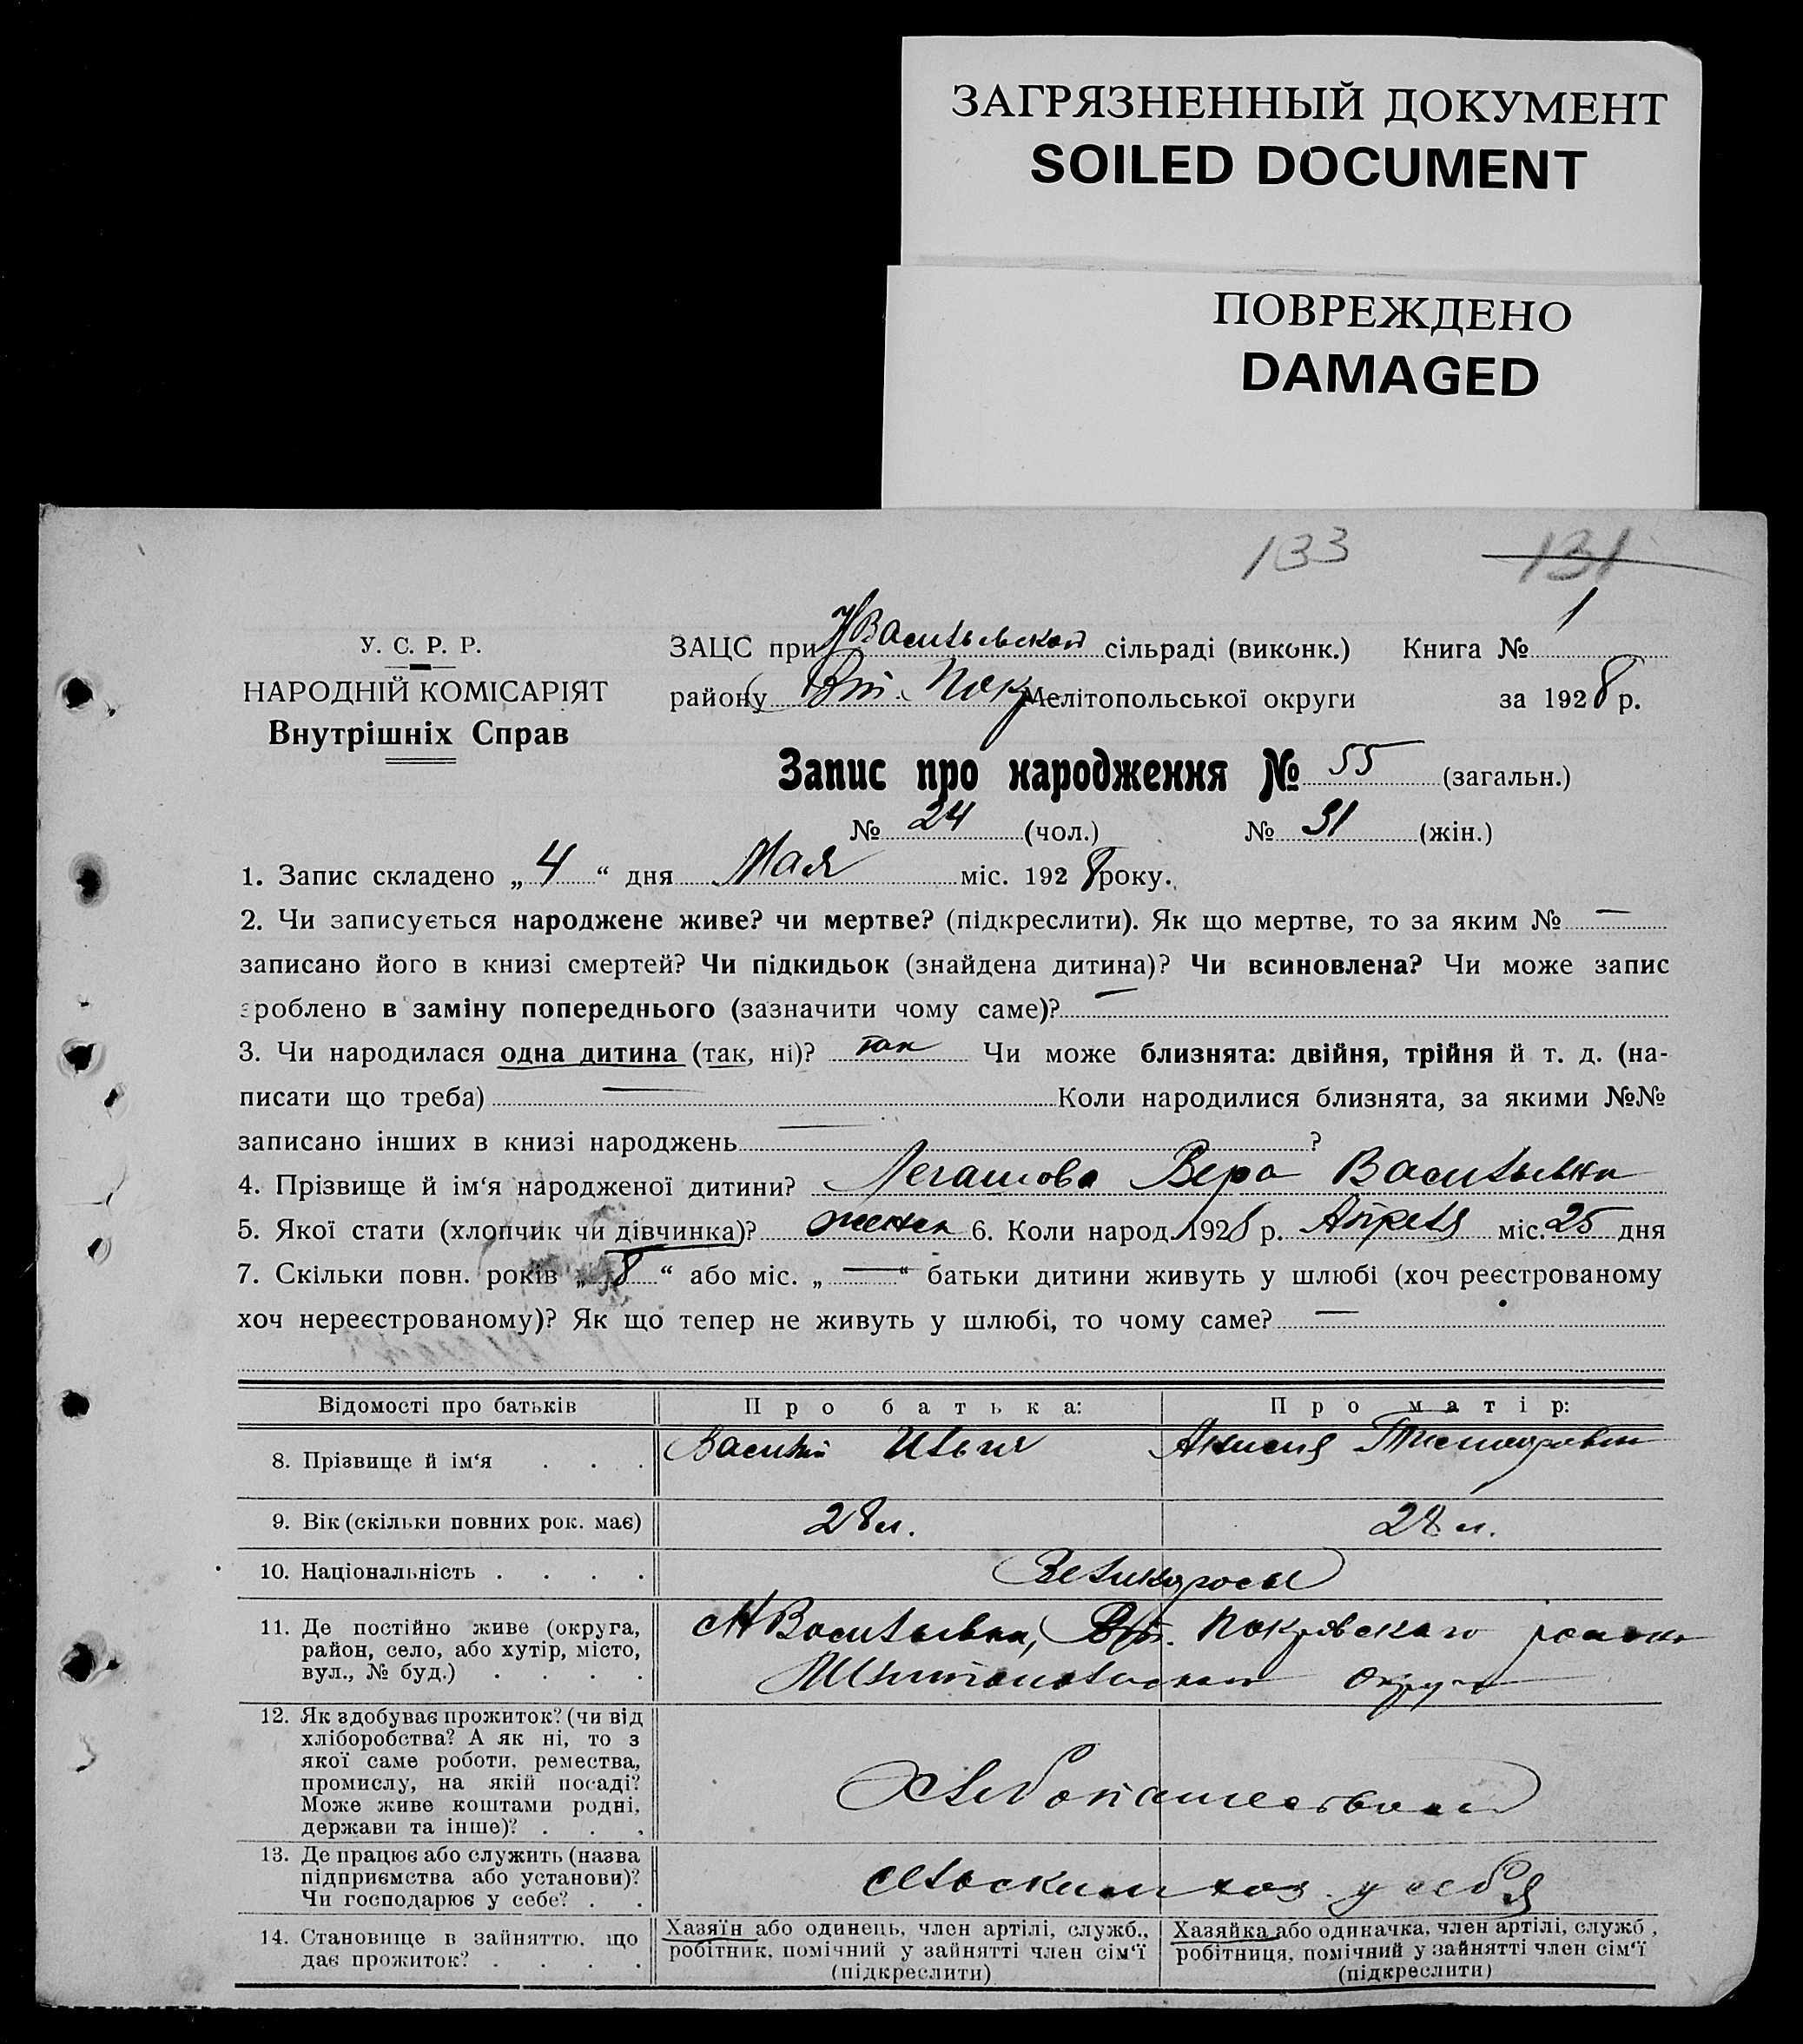 ЗАГРЯЗНЕННЫЙ ДОКУМЕНТ
SOILED DOCUMENT
ПОВРЕЖДЕНО
DAMAGED
133 131
У. С. Р. Р.
НАРОДНІЙ КОМІСАРІЯТ
Внутрішніх Справ
ЗАЦС при НВасильевской сільраді (виконк.) Книга № 1
району Вт. Пок Мелітопольської округи за 1928 р.
Запис про народження № 55 (загальн.)
№ 24 (чол.) № 31 (жін.)
1. Запис складено „ 4 “ дня Мая міс. 1928 року.
2. Чи записується народжене живе? чи мертве? (підкреслити). Як що мертве, то за яким № —
записано його в книзі смертей? Чи підкидьок (знайдена дитина)? Чи всиновлена? Чи може запис
зроблено в заміну попереднього (зазначити чому саме)? —
3. Чи народилася одна дитина (так, ні)? так Чи може близнята: двійня, трійня й т. д. (на-
писати що треба) — Коли народилися близнята, за якими №№
записано інших в книзі народжень — ?
4. Прізвище й ім‘я народженої дитини? Легашова Вера Васильевна
5. Якої стати (хлопчик чи дівчинка)? женск 6. Коли народ. 1928 р. Апреля міс. 25 дня
7. Скільки повн. років „ 8 “ або міс. „ — “ батьки дитини живуть у шлюбі (хоч реєстрованому
хоч нереєстрованому)? Як що тепер не живуть у шлюбі, то чому саме? —
Відомості про батьків Про батька: Про матір:
8. Прізвище й ім‘я . . . Василий Ильич Аксиния
9. Вік (скільки повних рок. має) 28 л. 28 л.
10. Національність . . . . Великороссы
11. Де постійно живе (округа,
район, село, або хутір, місто,
вул., № буд.) . . . .
с НВасильевка, Вт. Покровского района
Мелитопольской округи
12. Як здобуває прожиток? (чи від
хліборобства? А як ні, то з
якої саме роботи, ремества,
промислу, на якій посаді?
Може живе коштами родні,
держави та інше)? . . .
Хлебопашеством
13. Де працює або служить (назва
підприємства або установи)?
Чи господарює у себе? . .
сельским хоз. у себя
14. Становище в зайняттю, що
дає прожиток? . . . .
Хазяїн або одинець, член артілі, служб.,
робітник, помічний у зайнятті член сім‘ї
(підкреслити)
Хазяйка або одиначка, член артілі, служб.,
робітниця, помічний у зайнятті член сім‘ї
(підкреслити)